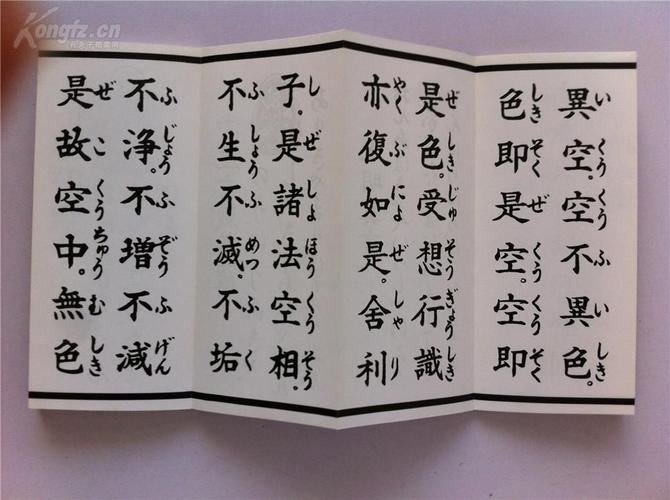 Kongfz.cn
孔夫子拍卖网
異空。空不異色。
い くう くう ふ い しき
色即是空。空即
しき そく ぜ くう くう そく
是色。受想行識
ぜ しき じゅ そう ぎょう しき
亦復如是。舎利
やく ぶ にょ ぜ しゃ り
子。是諸法空相。
し ぜ しょ ほう くう そう
不生不滅。不垢
ふ しょう ふ めつ ふ く
不浄。不増不減
ふ じょう ふ ぞう ふ げん
是故空中。無色
ぜ こ くう ちゅう む しき